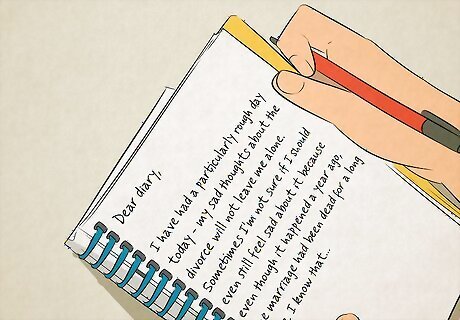 Dear diary,
I have had a particularly rough day
today - my sad thoughts about the
divorce will not leave me alone.
Sometimes I'm not sure if I should
even still feel sad about it because
even though it happened a year ago,
marriage had been dead for a long
I know that...